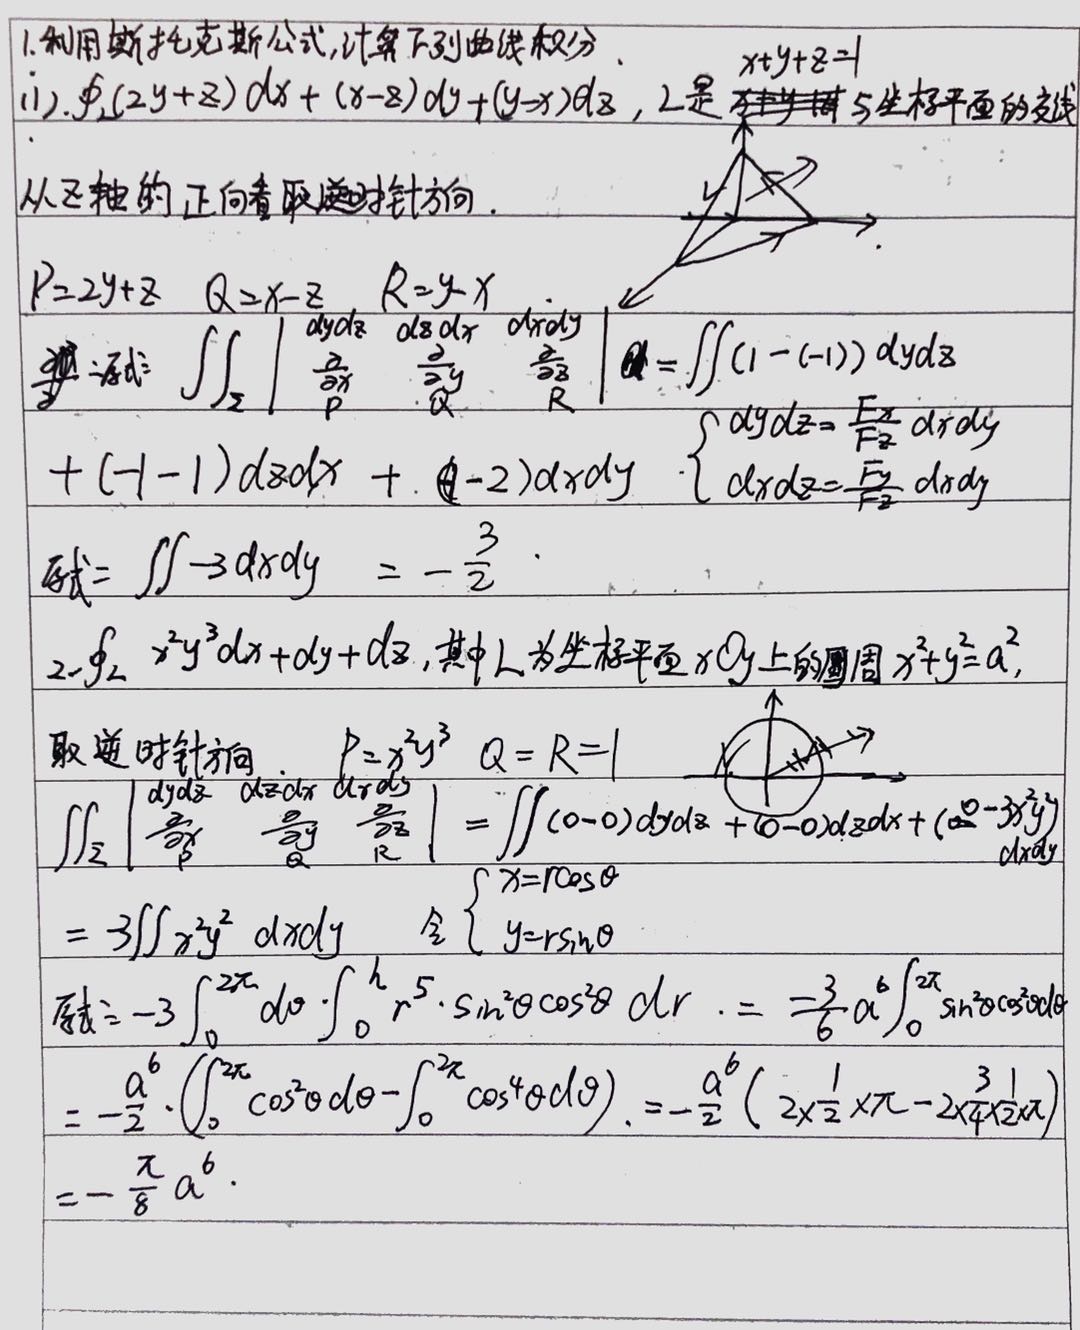 1.利用斯托克斯公式,计算下列曲线积分.
x+y+z=1
(1).∮L(2y+z)dx+(x-z)dy+(y-x)dz,L是与坐标平面的交线
从z轴的正向看取逆时针方向.
P=2y+z Q=x-z R=y-x
原式= ∬Σ | dydz dzdx dxdy ∂/∂x ∂/∂y ∂/∂z P Q R | = ∬(1-(-1))dydz
+(-1-1)dzdx + (1-2)dxdy { dydz=Fx/Fz dxdy dxdz=Fy/Fz dxdy
原式= ∬-3dxdy = -3/2.
2.∮L x²y³dx+dy+dz,其中L为坐标平面xOy上的圆周x²+y²=a²,
取逆时针方向. P=x²y³ Q=R=1
∬Σ | dydz dzdx dxdy ∂/∂x ∂/∂y ∂/∂z P Q R | = ∬(0-0)dydz+(0-0)dzdx+(0-3x²y²)dxdy
= 3∬x²y² dxdy 令 { x=rcosθ y=rsinθ
原式=-3∫₀^2π dθ·∫₀^h r⁵·sin²θcos²θ dr.= -3/6 a⁶∫₀^2π sin²θcos²θdθ
= -a⁶/2·(∫₀^2π cos²θdθ-∫₀^2π cos⁴θdθ).=-a⁶/2(2×1/2×π-2×3/4×1/2×π)
=-π/8 a⁶.